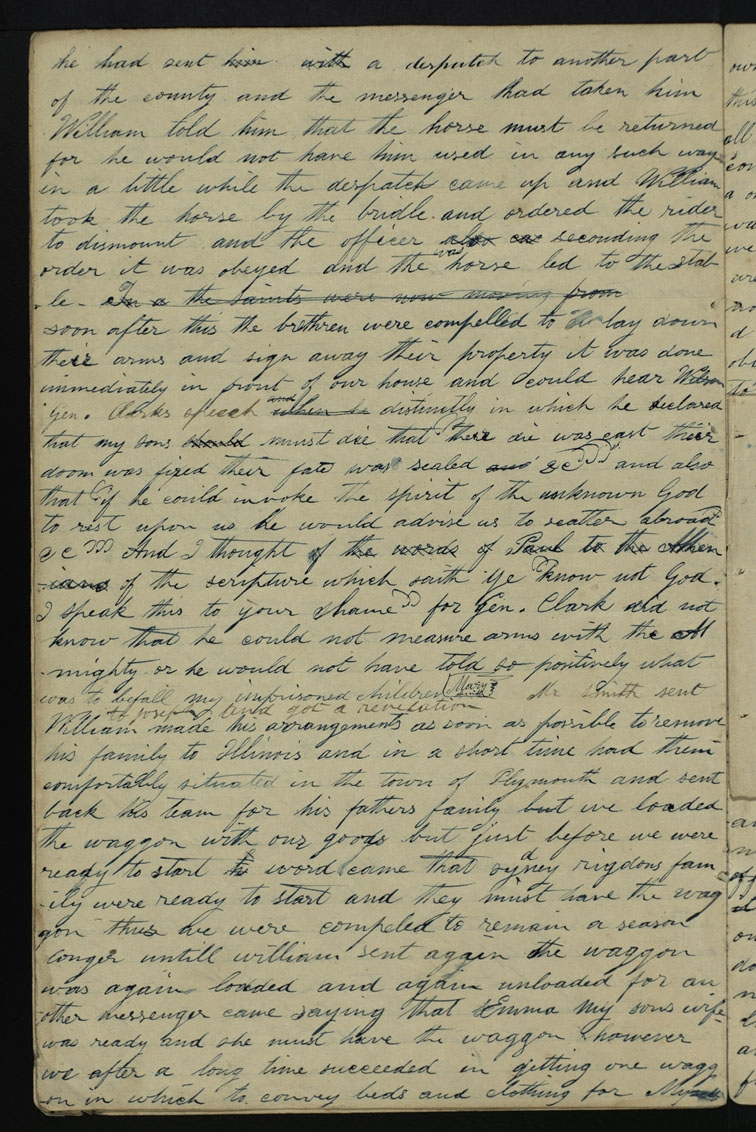 he had sent him with a despatch to another part
of the county and the messenger had taken him
William told him that the horse must be returned
for he would not have him used in any such way
in a little while the despatch came up and William
took the horse by the bridle and ordered the rider
to dismount and the officer also seconding the
order it was obeyed and the was horse led to the stab
-le- In a the saints were now moving from
soon after this the brethren were compelled to lay down
their arms and sign away their property it was done
immediately in front of our house and could hear
Gen. Clarks speech and when he distinctly in which he declared
that my sons should must die that their die was cast their
doom was fixed their fate was sealed and &c and also
that if he could invoke the spirit of the unknown God
to rest upon us he would advise us to scatter abroad
&c And I thought of the words of Paul to the Athen
-ians of the scripture which saith ye know not God.
I speak this to your shame for Gen. Clark did not
know that he could not measure arms with the Al
-mighty or he would not have told so positively what
was to befall my imprisoned children Mary Mr Smith sent
to Joseph & got a revelation
William made his arrangements as soon as possible to remove
his family to Illinois and in a short time had them
comfortably situated in the town of Plymouth and sent
back his team for his fathers family but we loaded
the waggon with our goods but just before we were
ready to start word came that sydney rigdons fam
-ily were ready to start and they must have the wag
gon thus we were compeled to remain a season
longer untill william sent again the waggon
was again loaded and again unloaded for an
-other messenger came saying that Emma my sons wife
was ready and she must have the waggon however
we after a long time succeeded in getting one wagg
-on in which to convey beds and clothing for